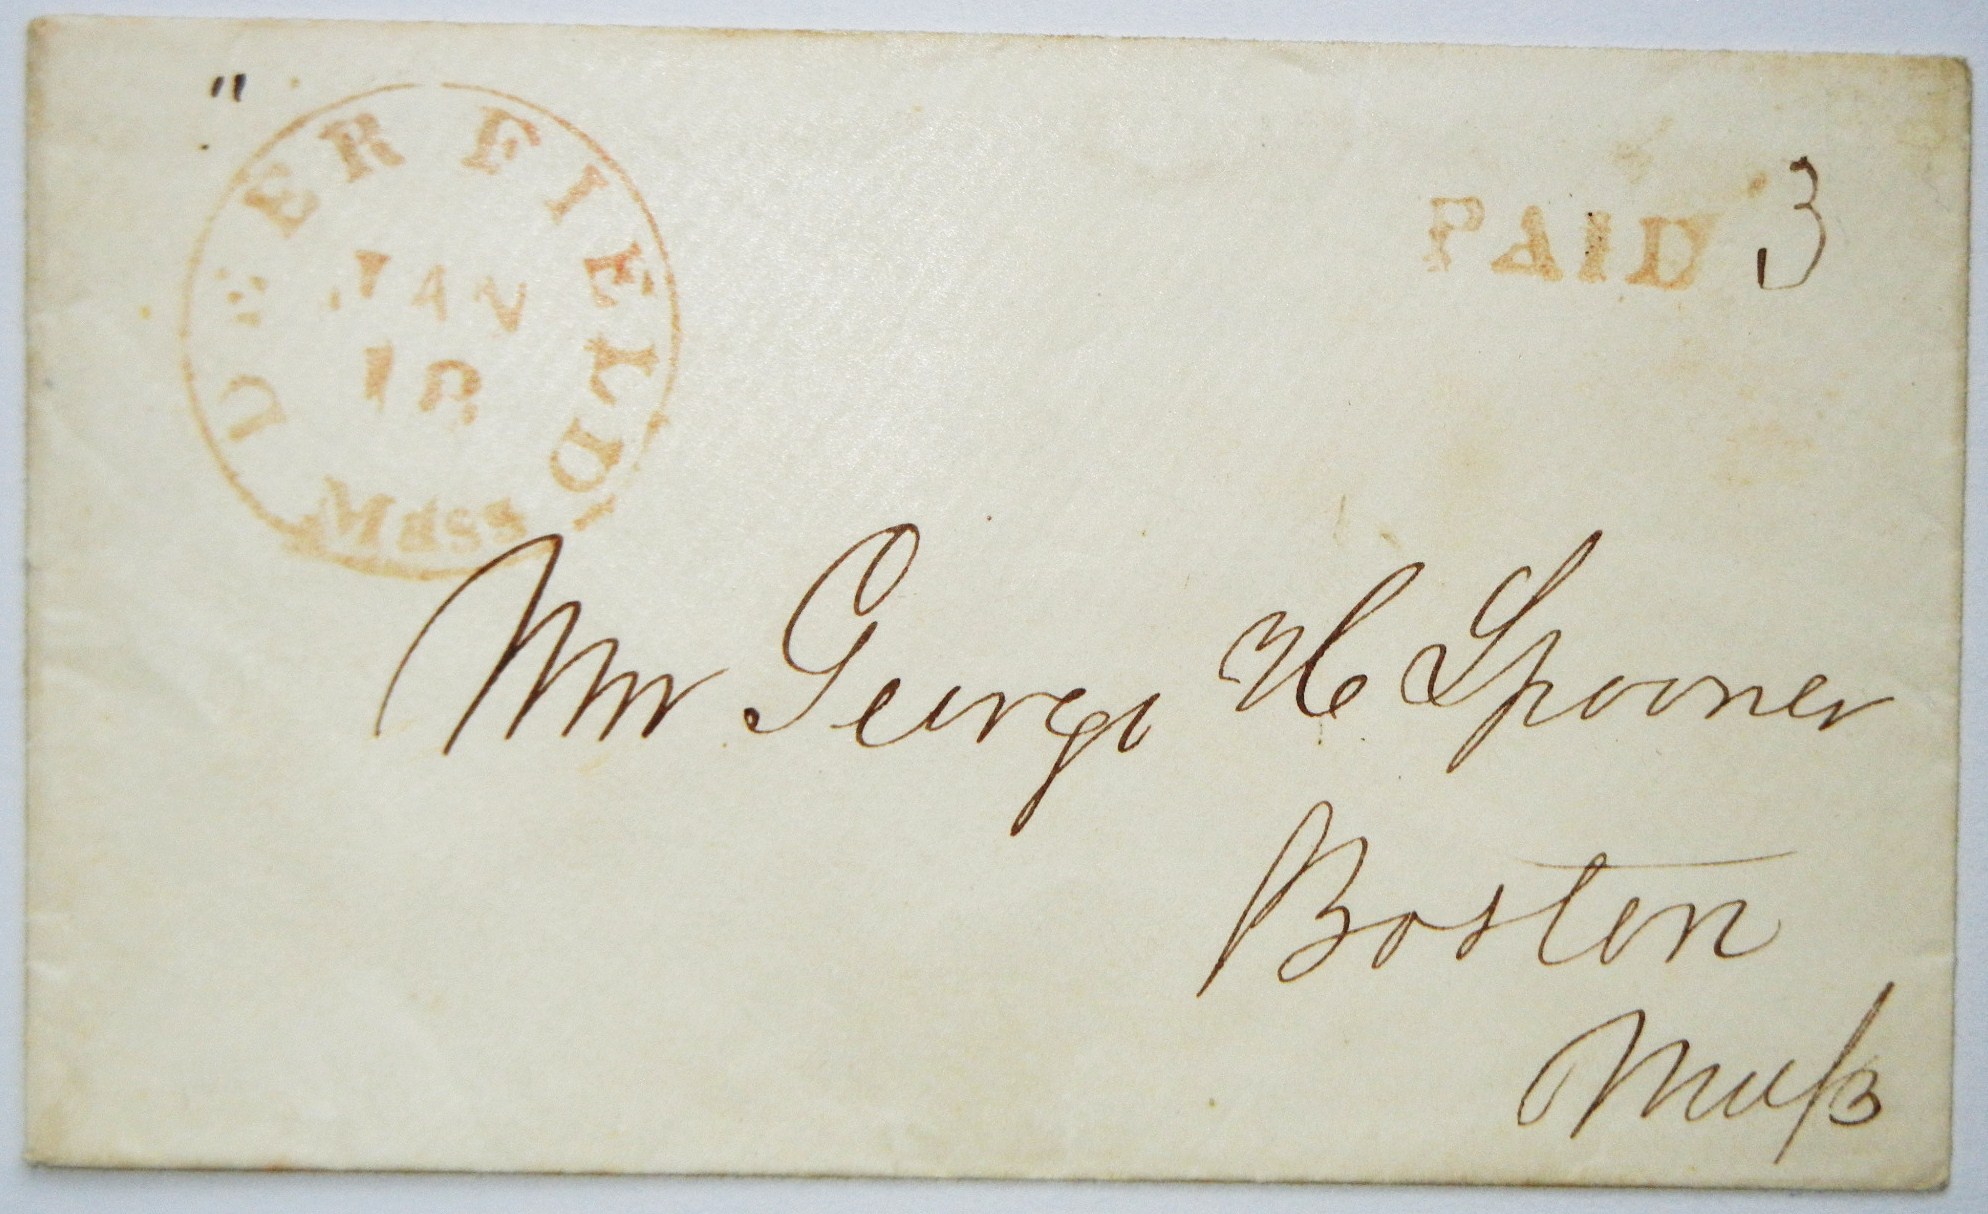 DEERFIELD
JAN
18
Mass
PAID 3
Mr George H Spooner
Boston
Mass